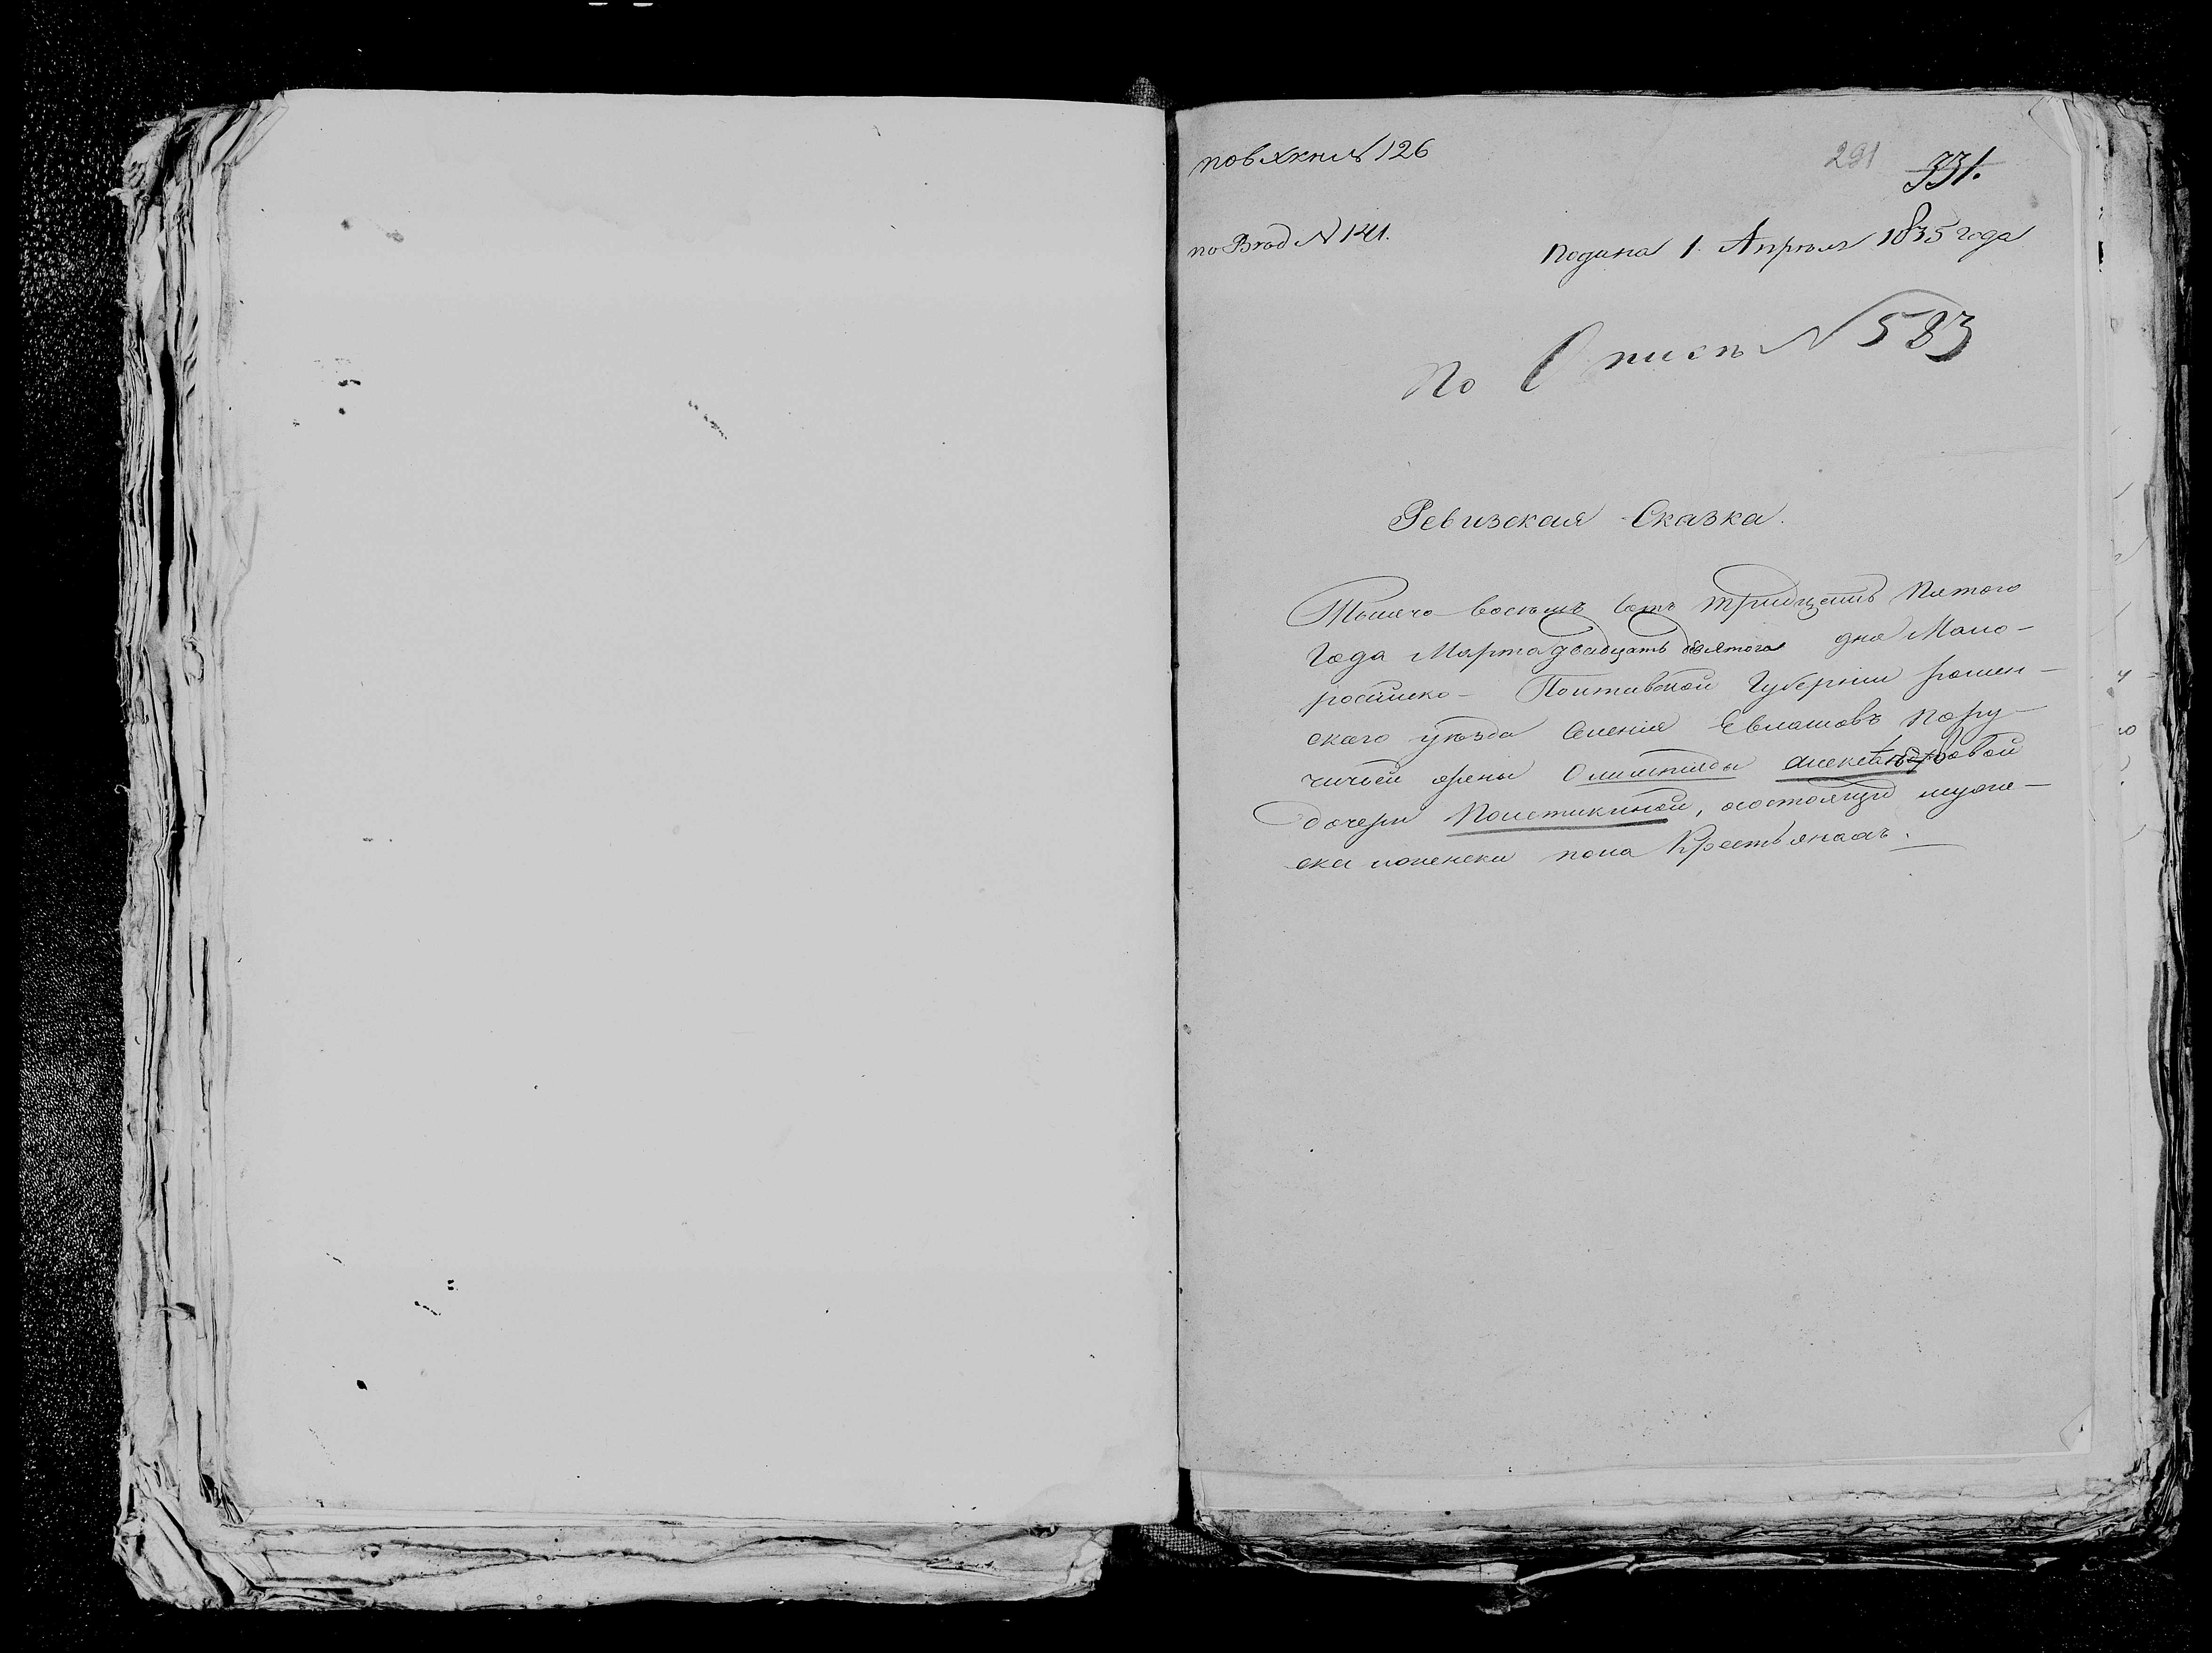 по вх книг № 126
291
331.
по Вход № 141.
Подана 1. Апреля 1835 года
По Описи № 583
Ревизская Сказка.
Тысяча восемь сотъ тридцать Пятого
Года Марта двадцать девятого дня Мало-
російско- Полтавской Губерніи ромен-
скаго уезда Селенія Евлашовъ Пору-
чичьей жены Олимпіяды Александровой
дочери Полетикиной, состоящи муже-
ска иженска пола Крестьянахъ.